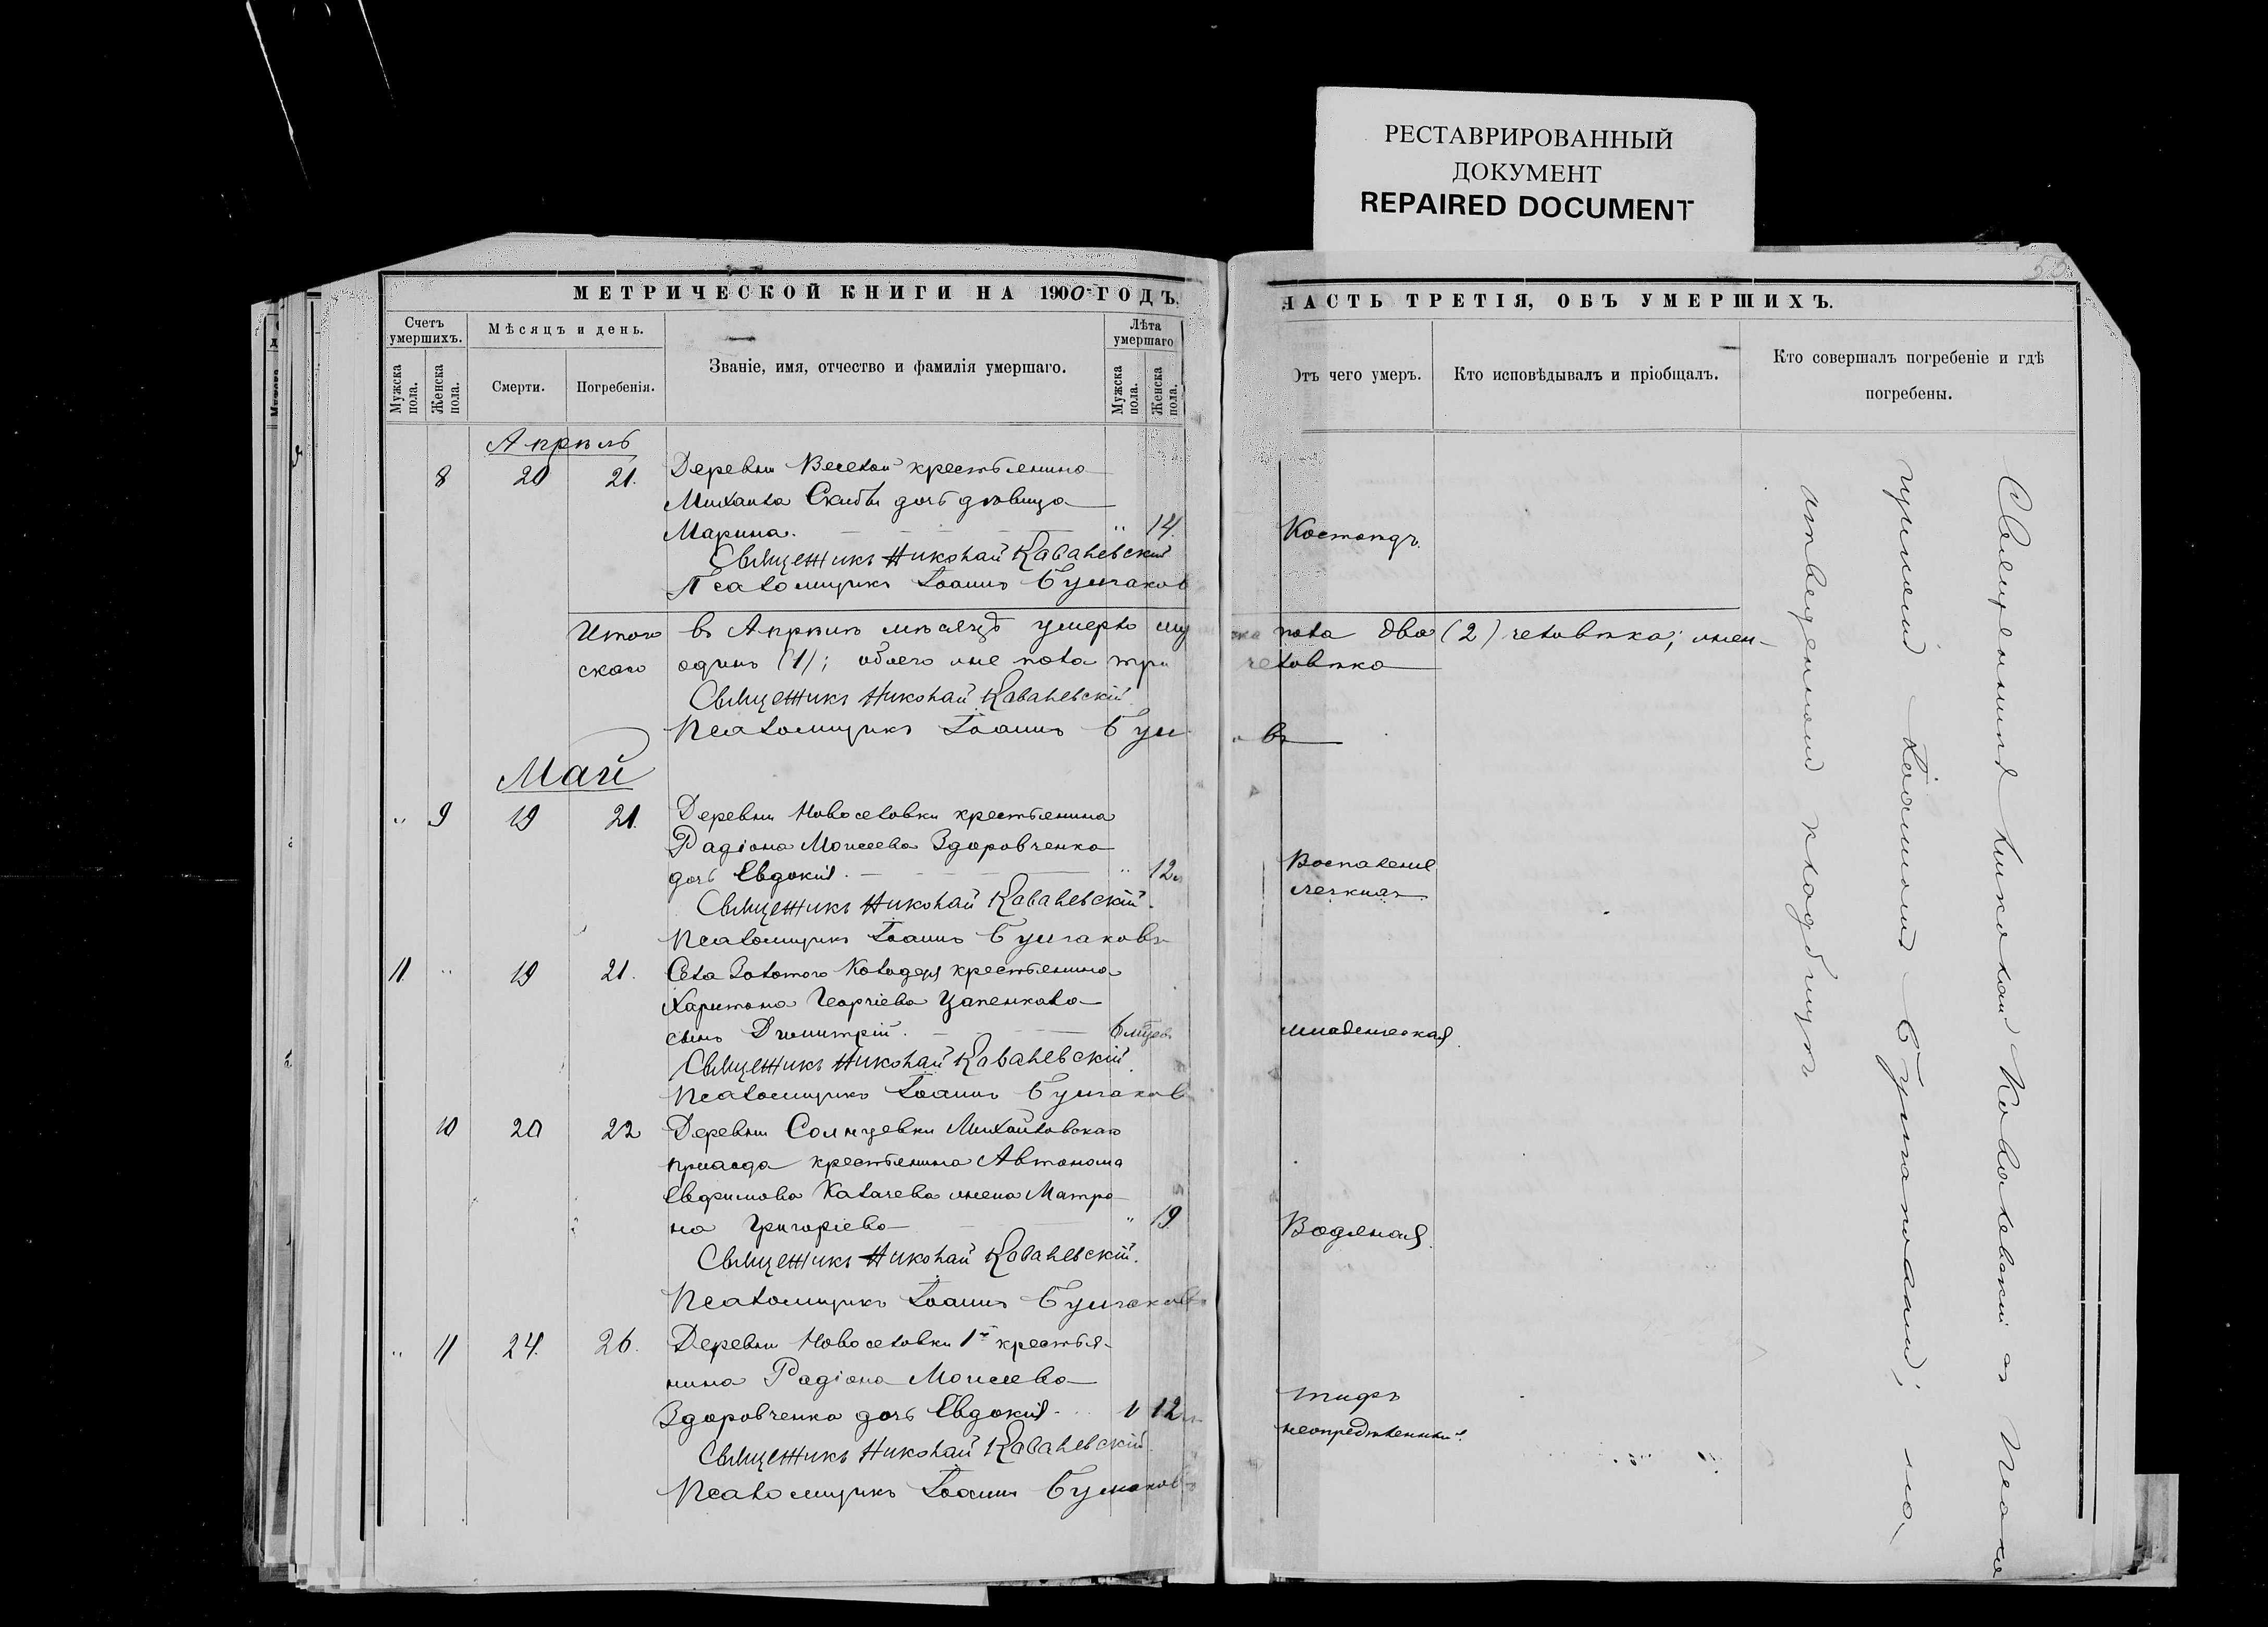 РЕСТАВРИРОВАННЫЙ
ДОКУМЕНТ
REPAIRED DOCUMENT
МЕТРИЧЕСКОЙ КНИГИ НА 1900 ГОДЪ.
Счетъ умершихъ.
Мѣсяцъ и день.
Званіе, имя, отчество и фамилія умершаго.
Лѣта умершаго
Мужска пола.
Женска пола.
Смерти.
Погребенія.
Мужска пола.
Женска пола.
Апрѣль
8 20 21. Деревни Веселой крестьянина
Михаила Скибы дочь дѣвица
Марина. " 14.
Священникъ Николай Ковалевскій
Псаломщикъ Іоаннъ Булгаков
Итого в Апрѣлѣ мѣсяцѣ умерло му
скаго одинъ (1); обоего же пола три
Священникъ Николай Ковалевскій
Псаломщикъ Іоаннъ Бул
Май
" 9 19 21. Деревни Новоселовки крестьянина
Радіона Моисеева Здоровченко
дочь Евдокія. " 12
Священникъ Николай Ковалевскій.
Псаломщикъ Іоаннъ Булгаковъ
11. " 19 21. Села Золотого Колодезя крестьянина
Харитона Георгіева Цапенкова
сынъ Димитрій. 6 мцев.
Священникъ Николай Ковалевскій
Псаломщикъ Іоаннъ Булгаков
10 20 22 Деревни Солнцевки Михайловскаго
прихода крестьянина Автонома
Евфимова Калачева жена Матро
на Григоріева " 19.
Священникъ Николай Ковалевскій.
Псаломщикъ Іоаннъ Булгаков
" 11 24. 26. Деревни Новоселовки 1й крестья-
нина Радіона Моисеева
Здоровченка дочь Евдокія. " 12
Священникъ Николай Ковалевскій
Псаломщикъ Іоаннъ Булгаков
ЧАСТЬ ТРЕТІЯ, ОБЪ УМЕРШИХЪ.
Отъ чего умеръ.
Кто исповѣдывалъ и пріобщалъ.
Кто совершалъ погребеніе и гдѣ
погребены.
Костоѣдъ.
пола два (2) человѣка; жен-
человѣка
въ
Воспаленіе
легкихъ
младенческая.
Водяная.
тифъ
Священникъ Николай Ковалевскій съ Псало
мщикомъ Іоанномъ Булгаковымъ; на
отведенномъ кладбищѣ